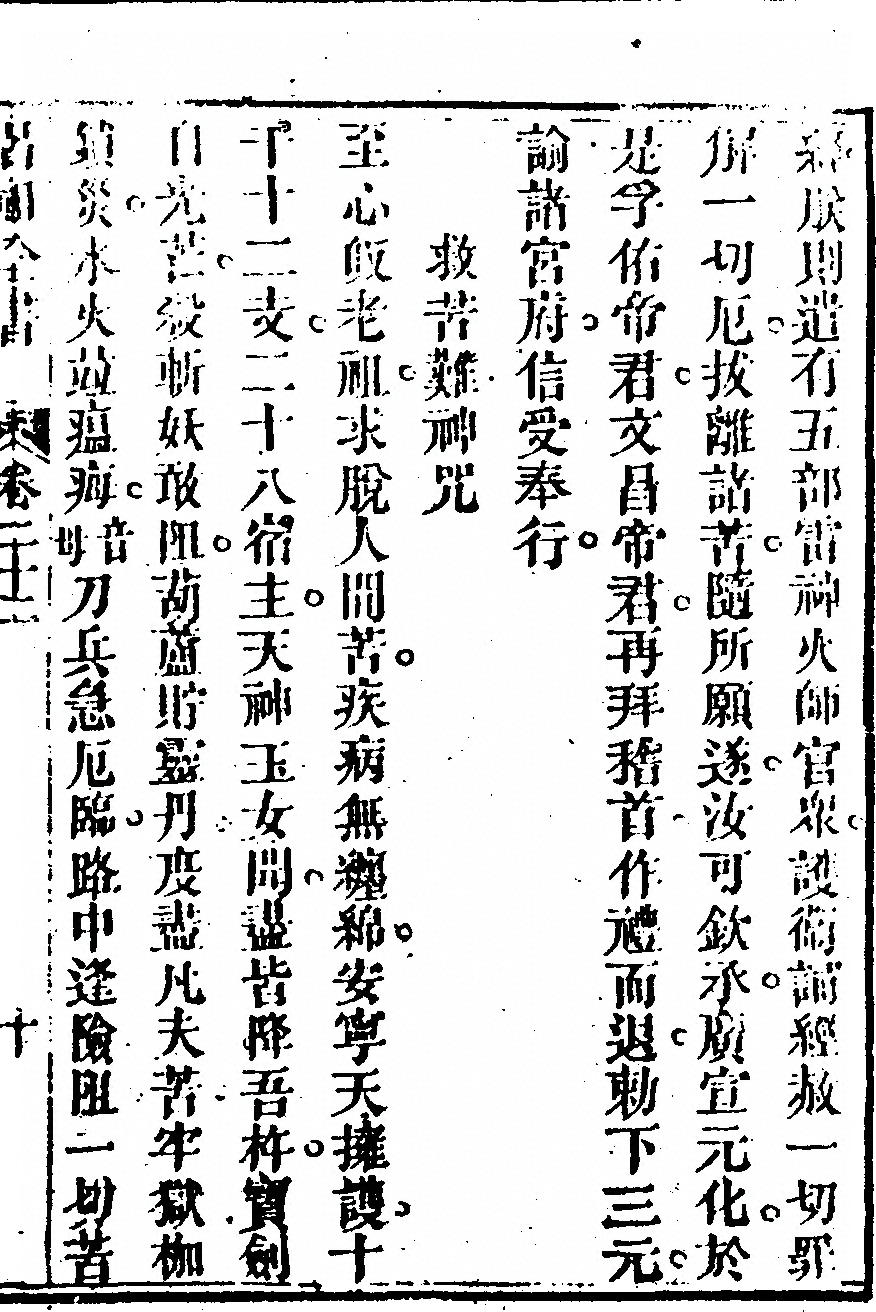 經朕則遣有五部雷神火師官衆護衛誦經赦一切罪
解一切厄拔離諸苦隨所願遂汝可欽承廣宣元化於
是孚佑帝君文昌帝君再拜稽首作禮而退勅下三元
諭諸宮府信受奉行
救苦難神咒
至心皈老祖求脫人間苦疾病無纏綿安寧天擁護十
干十二支二十八宿主天神玉女聞盡皆降吾杵寶劍
白光芒殺斬妖敢阻葫蘆貯靈丹度盡凡夫苦牢獄枷
鎖災水火並瘟痗音母刀兵急厄臨路中逢險阻一切苦
呂祖全書 卷二十二 十